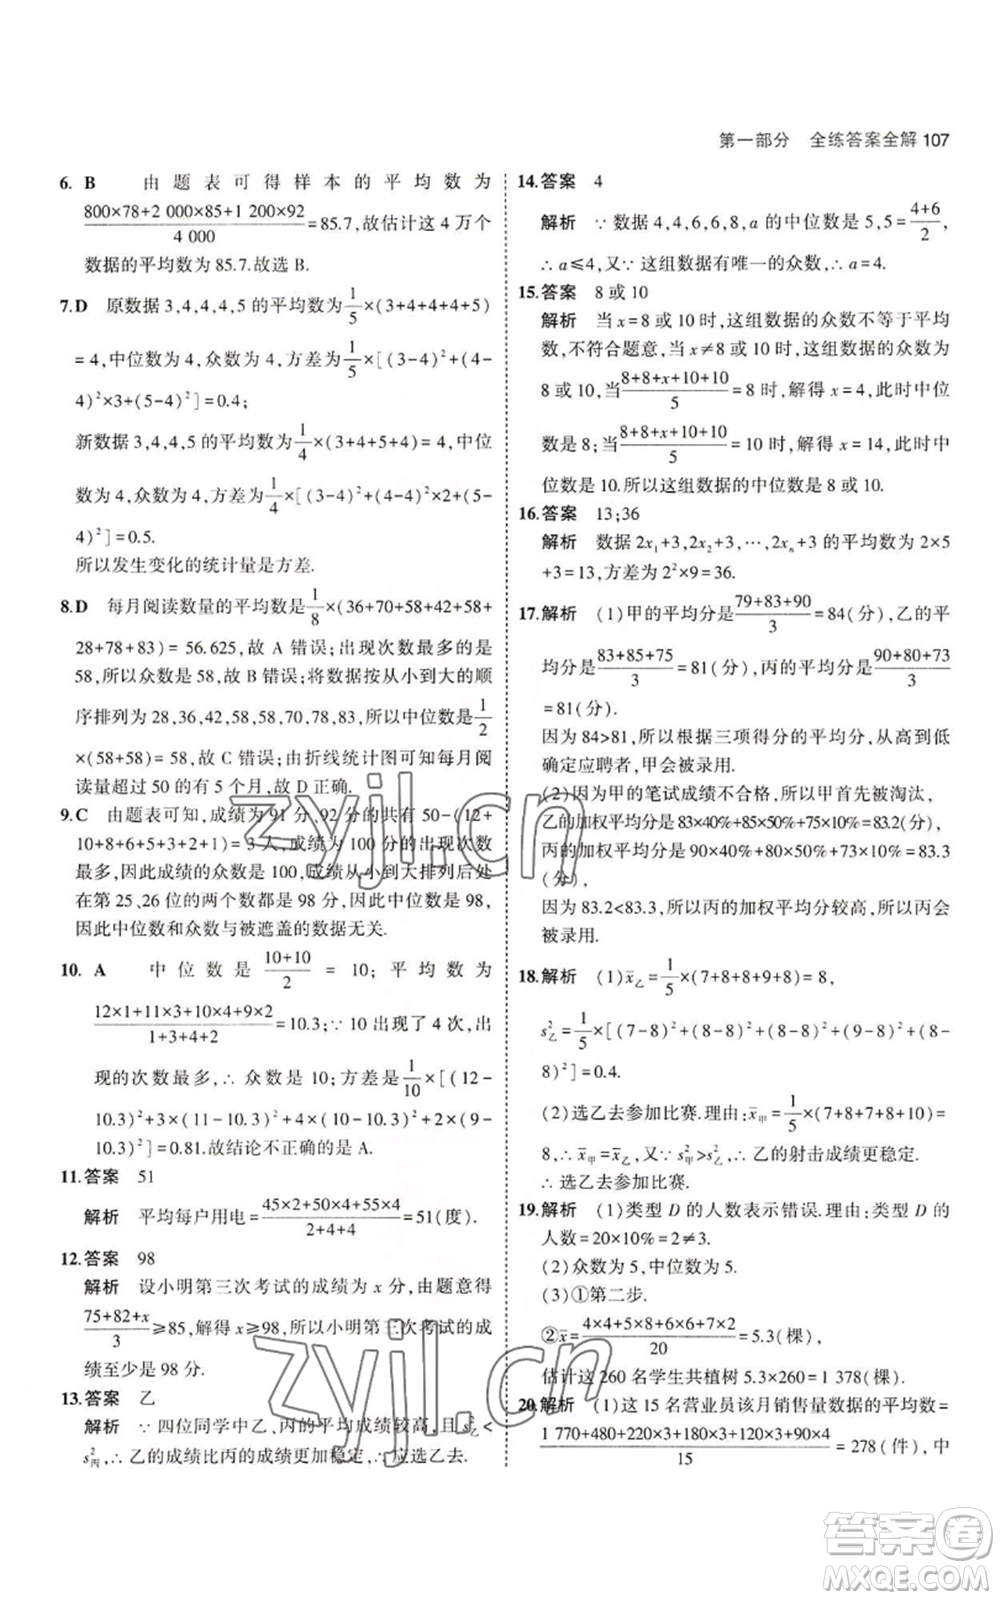 第一部分　全练答案全解 107
6. B　由题表可得样本的平均数为
(800×78+2 000×85+1 200×92)/4 000=85.7,故估计这4万个
数据的平均数为85.7.故选B.
7.D　原数据3,4,4,4,5的平均数为1/5×(3+4+4+4+5)
=4,中位数为4,众数为4,方差为1/5×[(3-4)²+(4-
4)²×3+(5-4)²]=0.4;
新数据3,4,4,5的平均数为1/4×(3+4+5+4)=4,中位
数为4,众数为4,方差为1/4×[(3-4)²+(4-4)²×2+(5-
4)²]=0.5.
所以发生变化的统计量是方差.
8.D　每月阅读数量的平均数是1/8×(36+70+58+42+58+
28+78+83)=56.625,故A错误;出现次数最多的是
58,所以众数是58,故B错误;将数据从小到大的顺
序排列为28,36,42,58,58,70,78,83,所以中位数是1/2
×(58+58)=58,故C错误;由折线统计图可知每月阅
读量超过50的有5个月,故D正确.
9.C　由题表可知,成绩为91分、92分的共有50-(12+
10+8+6+5+3+2+1)=3人,成绩为100分的出现次数
最多,因此成绩的众数是100,成绩从小到大排列后处
在第25、26位的两个数都是98分,因此中位数是98,
因此中位数和众数与被遮盖的数据无关.
10. A　中位数是(10+10)/2=10;平均数为
(12×1+11×3+10×4+9×2)/(1+3+4+2)=10.3;∵10出现了4次,出
现的次数最多,∴众数是10;方差是1/10×[(12-
10.3)²+3×(11-10.3)²+4×(10-10.3)²+2×(9-
10.3)²]=0.81.故结论不正确的是A.
11.答案　51
解析　平均每户用电=(45×2+50×4+55×4)/(2+4+4)=51(度).
12.答案　98
解析　设小明第三次考试的成绩为x分,由题意得
(75+82+x)/3≥85,解得x≥98,所以小明第三次考试的成
绩至少是98分.
13.答案　乙
解析　∵四位同学中乙、丙的平均成绩较高,且s²乙<
s²丙,∴乙的成绩比丙的成绩更加稳定,∴应选乙去.
14.答案　4
解析　∵数据4,4,6,6,8,a的中位数是5,5=(4+6)/2,
∴a≤4,又∵这组数据有唯一的众数,∴a=4.
15.答案　8或10
解析　当x=8或10时,这组数据的众数不等于平均
数,不符合题意,当x≠8或10时,这组数据的众数为
8或10,当(8+8+x+10+10)/5=8时,解得x=4,此时中位
数是8;当(8+8+x+10+10)/5=10时,解得x=14,此时中
位数是10.所以这组数据的中位数是8或10.
16.答案　13;36
解析　数据2x₁+3,2x₂+3,⋯,2xₙ+3的平均数为2×5
+3=13,方差为2²×9=36.
17.解析　(1)甲的平均分是(79+83+90)/3=84(分),乙的平
均分是(83+85+75)/3=81(分),丙的平均分是(90+80+73)/3
=81(分).
因为84>81,所以根据三项得分的平均分,从高到低
确定应聘者,甲会被录用.
(2)因为甲的笔试成绩不合格,所以甲首先被淘汰,
乙的加权平均分是83×40%+85×50%+75×10%=83.2(分),
丙的加权平均分是90×40%+80×50%+73×10%=83.3
(分),
因为83.2<83.3,所以丙的加权平均分较高,所以丙会
被录用.
18.解析　(1)x̄乙=1/5×(7+8+8+9+8)=8,
s²乙=1/5×[(7-8)²+(8-8)²+(8-8)²+(9-8)²+(8-
8)²]=0.4.
(2)选乙去参加比赛.理由:x̄甲=1/5×(7+8+7+8+10)=
8,∴x̄甲=x̄乙,又∵s²甲>s²乙,∴乙的射击成绩更稳定.
∴选乙去参加比赛.
19.解析　(1)类型D的人数表示错误.理由:类型D的
人数=20×10%=2≠3.
(2)众数为5,中位数为5.
(3)①第二步.
②x̄=(4×4+5×8+6×6+7×2)/20=5.3(棵),
估计这260名学生共植树5.3×260=1 378(棵).
20.解析　(1)这15名营业员该月销售量数据的平均数=
(1 770+480+220×3+180×3+120×3+90×4)/15=278(件),中
zyjl.cn
zyjl.cn
答案卷
MXQE.COM